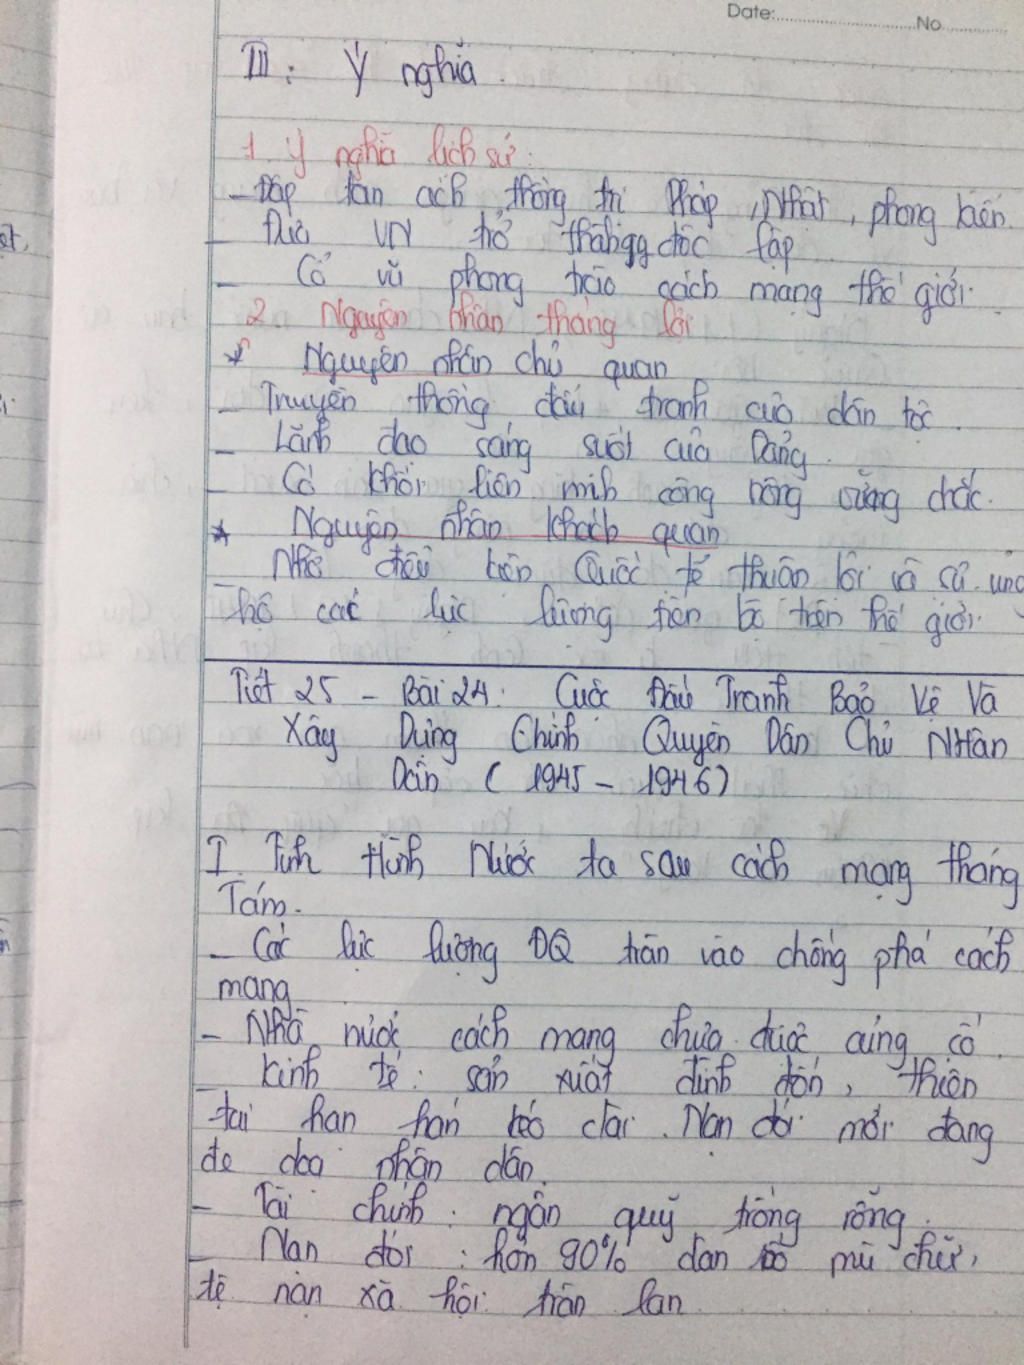 Date: No
III: Ý nghĩa.
1. Ý nghĩa lịch sử:
- Đập tan ách thống trị Pháp, Nhật, phong kiến.
- Đưa VN trở độc lập
- Cổ vũ phong trào cách mạng thế giới.
2. Nguyên nhân thắng lợi
* Nguyên nhân chủ quan
- Truyền thống đấu tranh của dân tộc.
- Lãnh đạo sáng suốt của Đảng.
- Có khối liên minh công nông vững chắc.
* Nguyên nhân khách quan
- Nhờ điều kiện Quốc tế thuận lợi và sự ủng
hộ các lực lượng tiến bộ trên thế giới.
Tiết 25 - Bài 24: Cuộc Đấu Tranh Bảo Vệ Và
Xây Dựng Chính Quyền Dân Chủ Nhân
Dân (1945 - 1946)
I. Tình Hình Nước ta sau cách mạng tháng
Tám.
- Các lực lượng ĐQ tràn vào chống phá cách
mạng
- Nhà nước cách mạng chưa được củng cố.
- Kinh tế: sản xuất đình đốn, thiên
tai hạn hán kéo dài. Nạn đói mới đang
đe dọa nhân dân.
- Tài chính: ngân quỹ trống rỗng.
- Nạn đói: hơn 90% dân số mù chữ,
tệ nạn xã hội tràn lan.